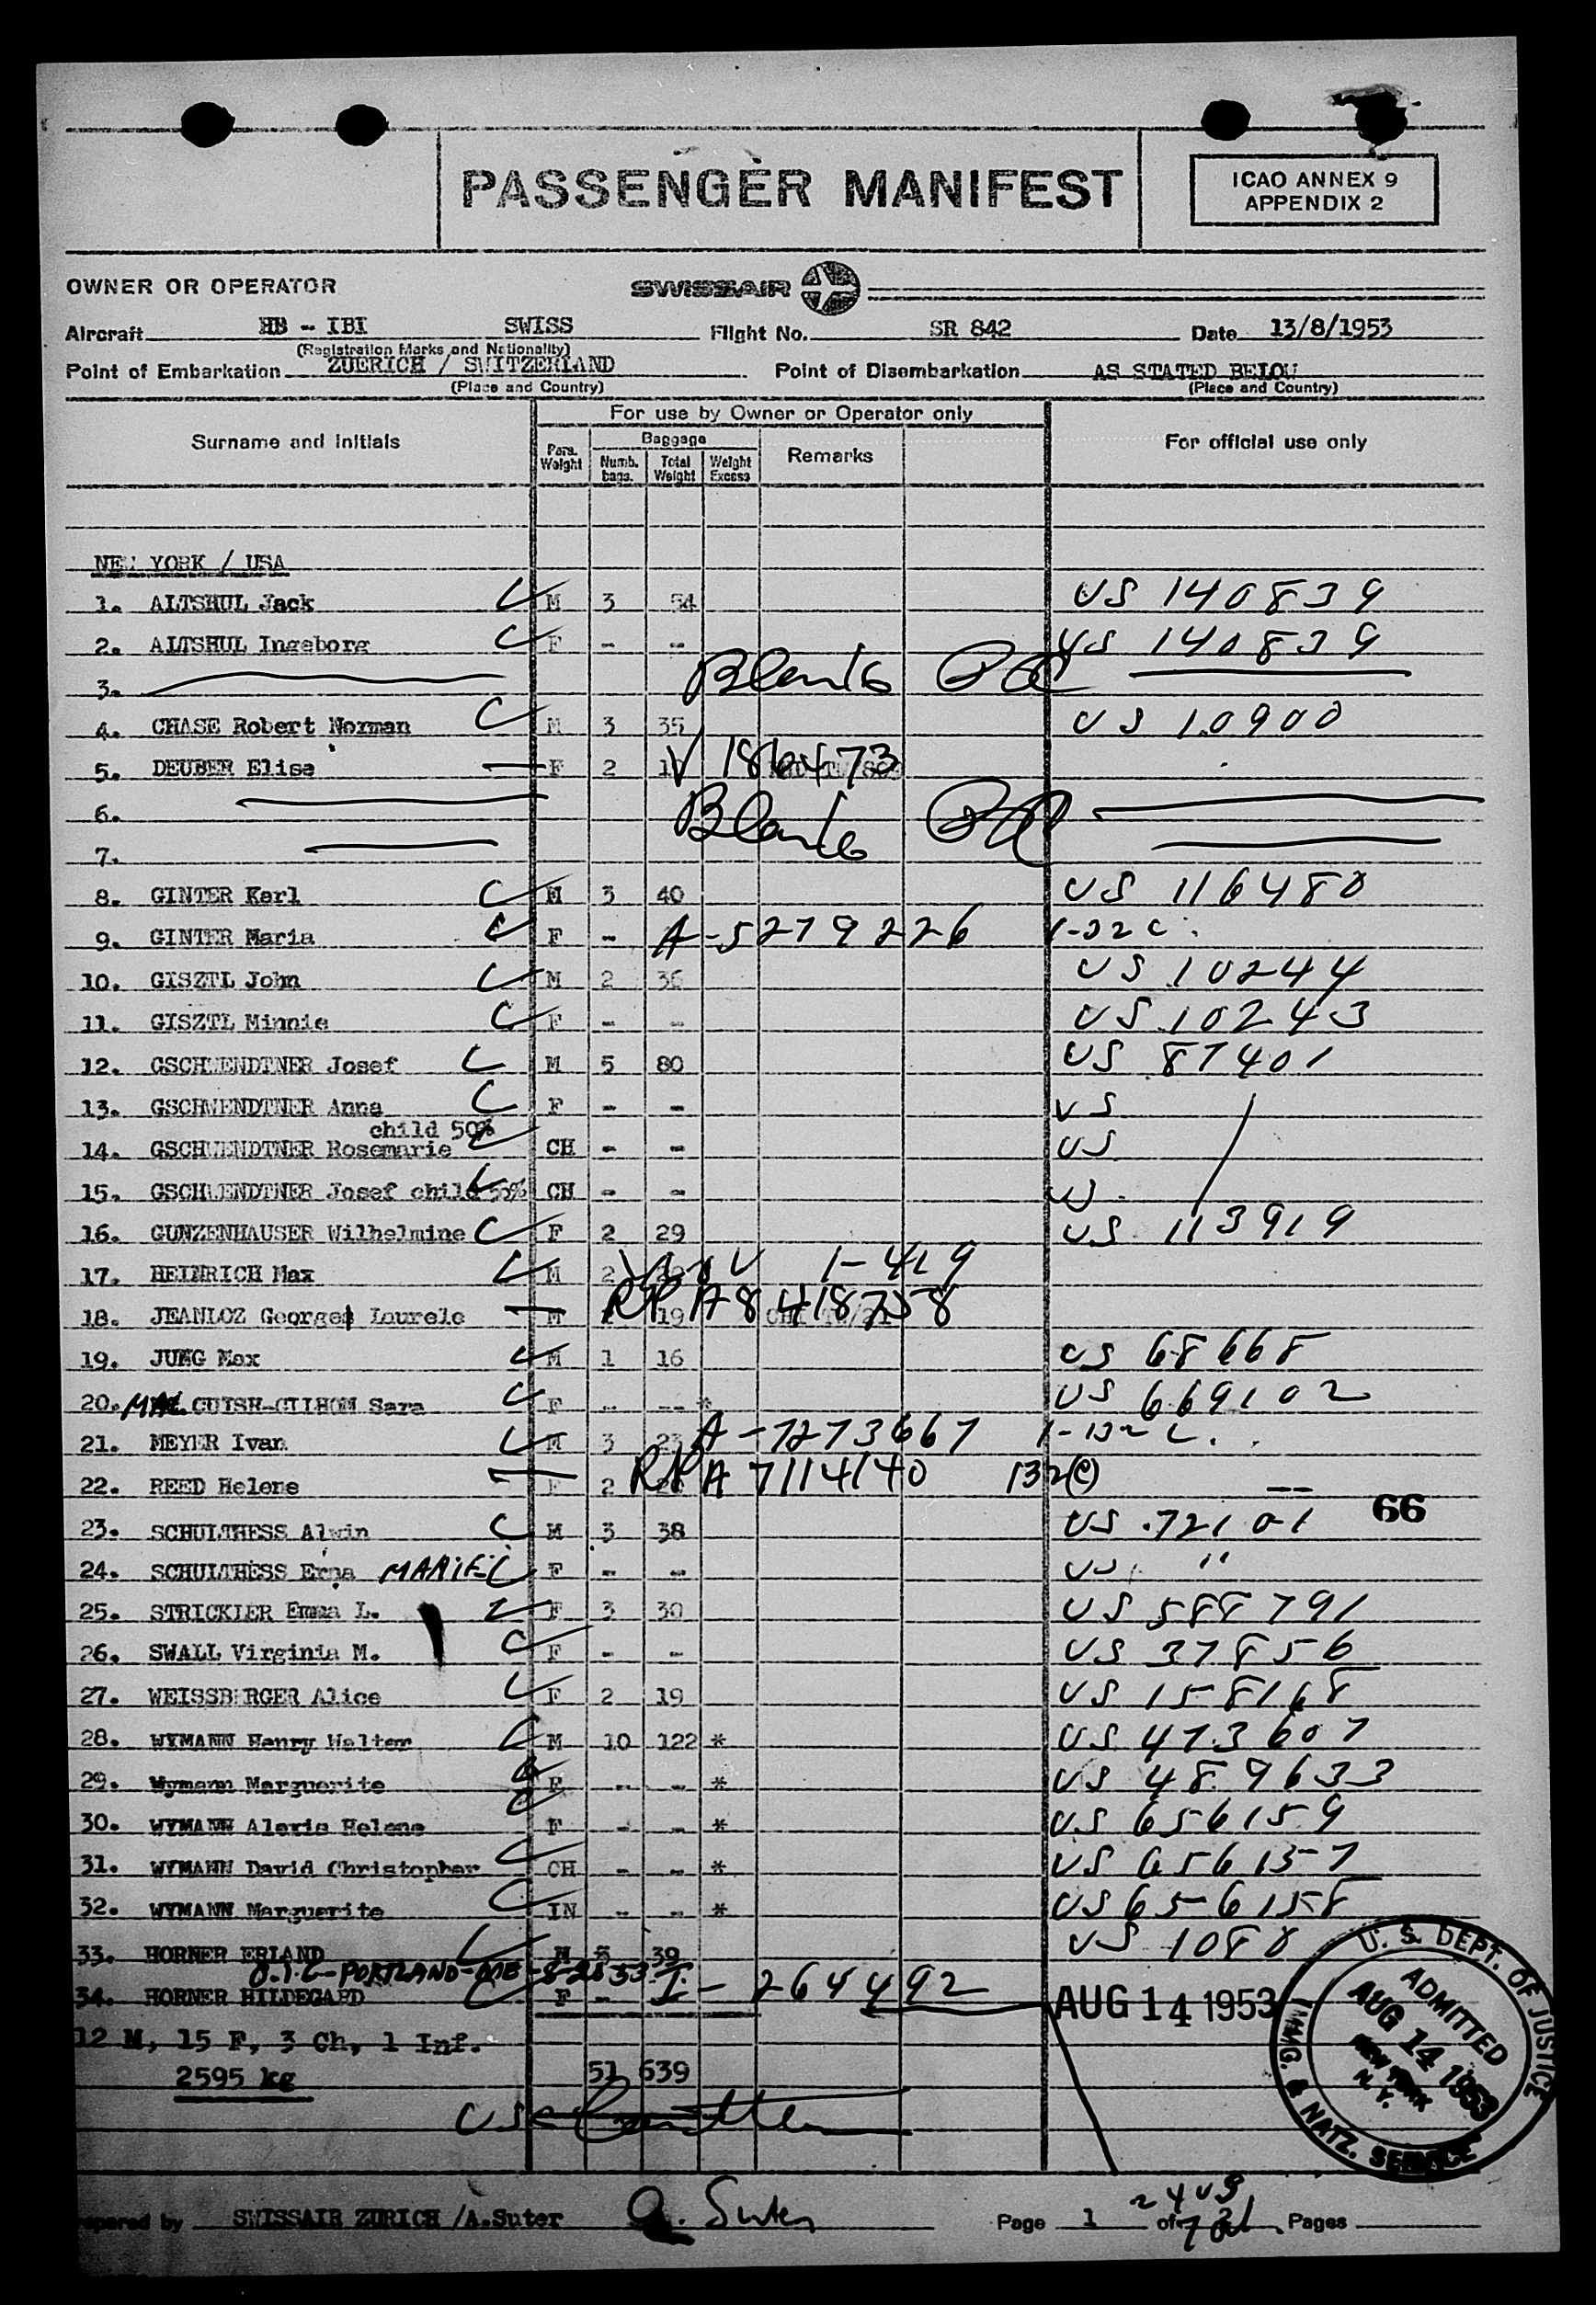 PASSENGER MANIFEST
ICAO ANNEX 9
APPENDIX 2
OWNER OR OPERATOR SWISSAIR
Aircraft HB - IBI SWISS Flight No. SR 842 Date 13/8/1953
(Registration Marks and Nationality)
Point of Embarkation ZUERICH / SWITZERLAND Point of Disembarkation AS STATED BELOW
(Place and Country) (Place and Country)
Surname and Initials For use by Owner or Operator only For official use only
Pass. Weight Baggage Remarks
Numb. bags. Total Weight Weight Excess
NEW YORK / USA
1. ALTSHUL Jack M 3 54 US 140839
2. ALTSHUL Ingeborg F - - US 140839
3. Blank
4. CHASE Robert Norman M 3 35 US 10900
5. DEUBER Elise F 2 V 186473
6. Blank
7.
8. GINTER Karl M 3 40 US 116480
9. GINTER Maria F - A-5279226 1-22 C
10. GISZTL John M 2 36 US 10244
11. GISZTL Minnie F - - US 10243
12. GSCHWENDTNER Josef M 5 80 US 87401
13. GSCHWENDTNER Anna F - - US
child 50%
14. GSCHWENDTNER Rosemarie CH - - US
15. GSCHWENDTNER Josef child 50% CH - - US
16. GUNZENHAUSER Wilhelmine F 2 29 US 113919
17. HEINRICH Max M 2 1-419
18. JEANLOZ Georges Laurele M 19 RP A8418758
19. JUNG Max M 1 16 US 68668
20. F - -- * US 669102
21. MEYER Ivan M 3 23 A-7273667
22. REED Helene F 2 RP A 7114140 132(e)
66
23. SCHULTHESS Alwin M 3 38 US 72101
24. SCHULTHESS Erna MARIE F - - US "
25. STRICKLER Emma L. F 3 30 US 588791
26. SWALL Virginia M. F - - US 37856
27. WEISSBERGER Alice F 2 19 US 158168
28. WYMANN Henry Walter M 10 122 * US 473607
29. Wymann Marguerite F - - * US 489633
30. WYMANN Alexis Helene F - - * US 656159
31. WYMANN David Christopher CH - - * US 656157
32. WYMANN Marguerite IN - - * US 656158
33. HORNER ERLAND M 3 39 US 1080
O.I.C-PORTLAND-ME
34. HORNER HILDEGARD F - I-264492
AUG 14 1953
12 M, 15 F, 3 Ch, 1 Inf.
2595 kg 51 639
U. S. DEPT. OF JUSTICE
ADMITTED
AUG 14 1953
NEW YORK
N. Y.
IMMIG. & NATZ. SERVICE
by SWISSAIR ZURICH /A.Suter A. Suter Page 1 of Pages
24 US